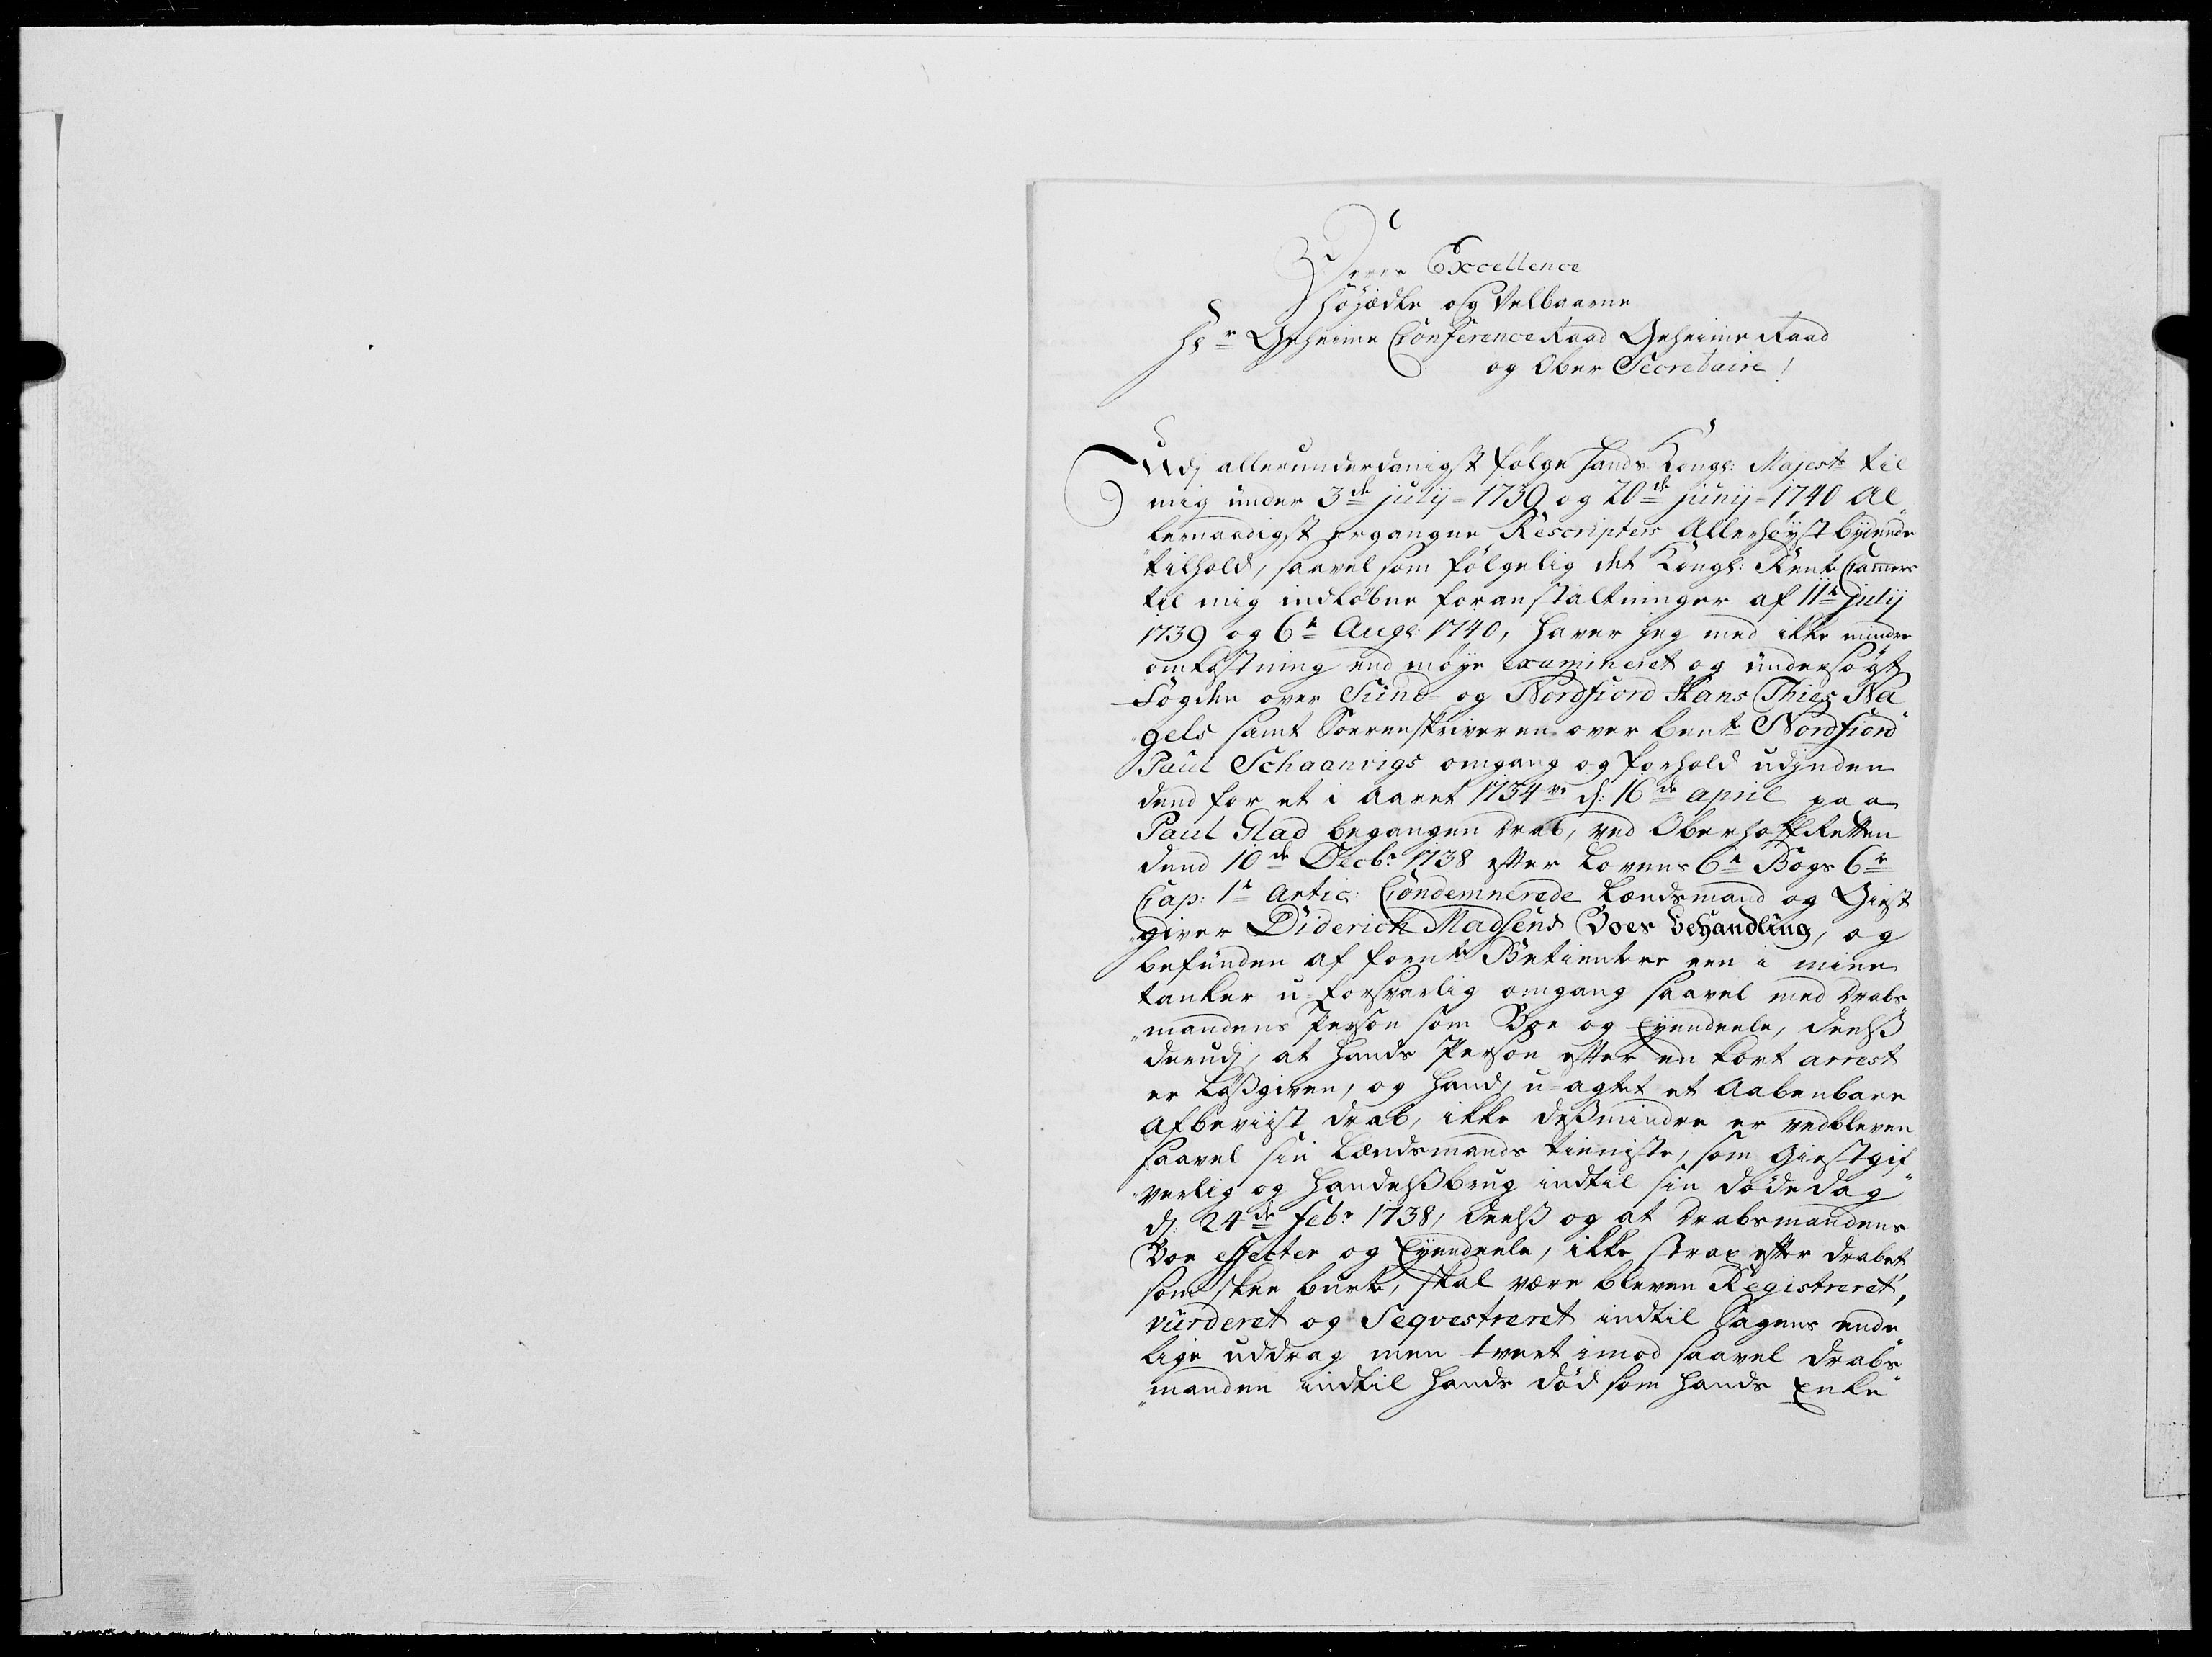 Deres Excellence
Höjædle og Velbaarne
Hr Geheime Conference Raad Geheime Raad
og Ober Secretaire!
Udj allerunderdanigst følge hands Kongl: Majests til
mig under 3de julij = 1739 og 20de junij = 1740 Al„
lernaadigst ergangne Rescripters Allerhøyst bydende
tilhold, saavel som følgelig det Kongl: Rente Cammers
til mig indløbne foranstaltninger af 11te julij
1739 og 6te Augs: 1740, haver jeg med ikke mindre
omkostning end møye examineret og undersøgt
Fogden over Sund- og Nordfiord Hans Thies Na„
„gels samt Sorenskriveren over bente Nordfiord
Paul Schaanvigs omgang og forhold udjnden
dend for et i Aaret 1734ve d: 16de april paa
Paul Glad begangen drab, ved Oberhoff Retten
dend 10de Decbr 1738 efter Lovens 6te Bogs 6te
Cap: 1te Artic: Condemnerede Lændsmand og Giest
„giver Diderich Madsens Boes behandling, og
befunden af fornte Betientere een i mine
tanker u-forsvarlig omgang saavel med drabs„
„mandens Person som Boe og Eyendeele, deelß
derudj, at hands Person efter en kort arrest
er Løßgiven, og hand, u-agtet et Aabenbare
afbeviist drab, ikke deßmindre er vedbleven
saavel sin Lændsmands tienniste, som Giestgif„
„verlig og Handelßbrug indtil sin dødedag
d: 24de febr 1738, deelß og at drabsmandens
Boe effecter og Eyendeele, ikke strax efter drabet
som skee burte, skal være bleven Registreret,
vurderet og Seqvestreret indtil Sagens ende„
lige uddrag men tvert imod saavel drabs„
„manden indtil hands død som hands Enke